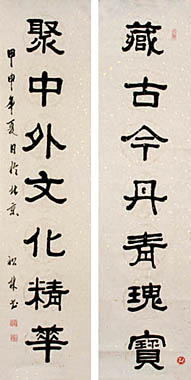 藏古今丹青瑰寶
聚中外文化精華
甲申年夏月於北京